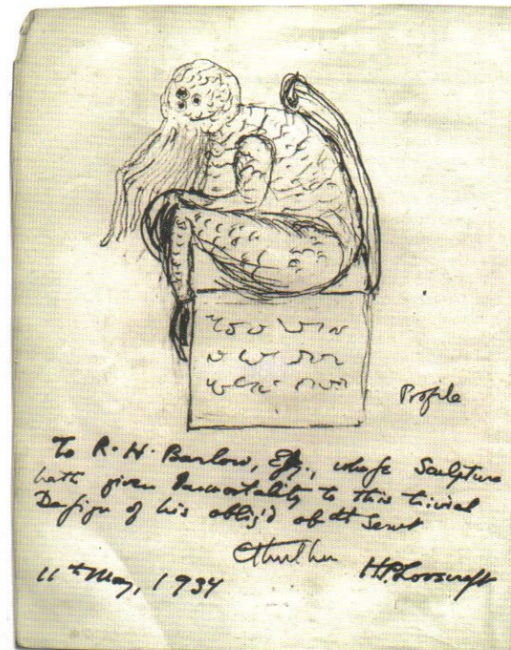 Profile
To R. H. Barlow, Esq., whose Sculpture
hath given Immortality to this trivial
Design of his oblig'd obdt Servt
Cthulhu H P Lovecraft
11th May, 1934